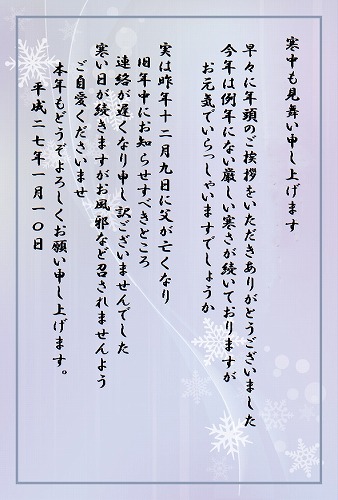 寒中も見舞い申し上げます
早々に年頭のご挨拶をいただきありがとうございました
今年は例年にない厳しい寒さが続いておりますが
お元気でいらっしゃいますでしょうか
実は昨年十二月九日に父が亡くなり
旧年中にお知らせすべきところ
連絡が遅くなり申し訳ございませんでした
寒い日が続きますがお風邪など召されませんよう
ご自愛くださいませ
本年もどうぞよろしくお願い申し上げます。
平成二七年一月一〇日